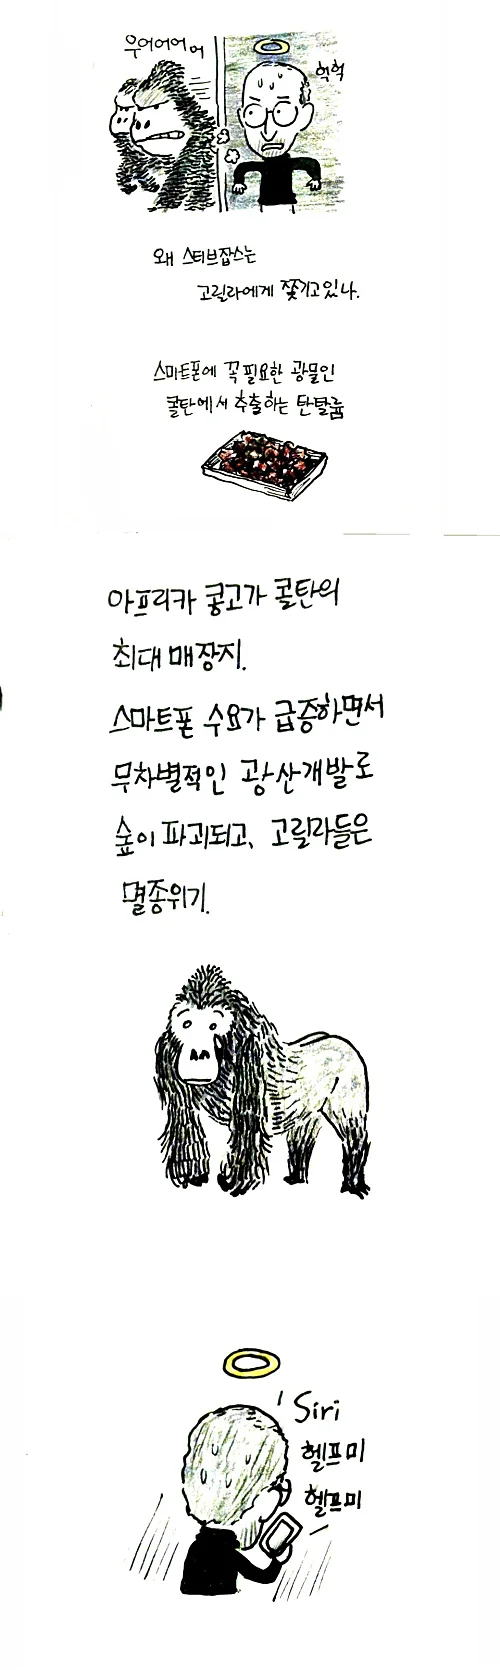 우어어어어
헉헉
왜 스티브잡스는
고릴라에게 쫓기고있나.
스마트폰에 꼭필요한 광물인
콜탄에서 추출하는 탄탈륨
아프리카 콩고가 콜탄의
최대 매장지.
스마트폰 수요가 급증하면서
무차별적인 광산개발로
숲이 파괴되고, 고릴라들은
멸종위기.
Siri
헬프미
헬프미